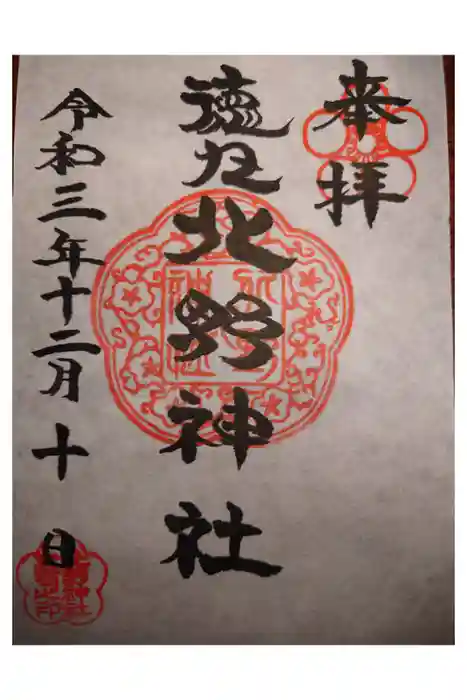 奉拝
徳丸北野神社
令和三年十二月十日